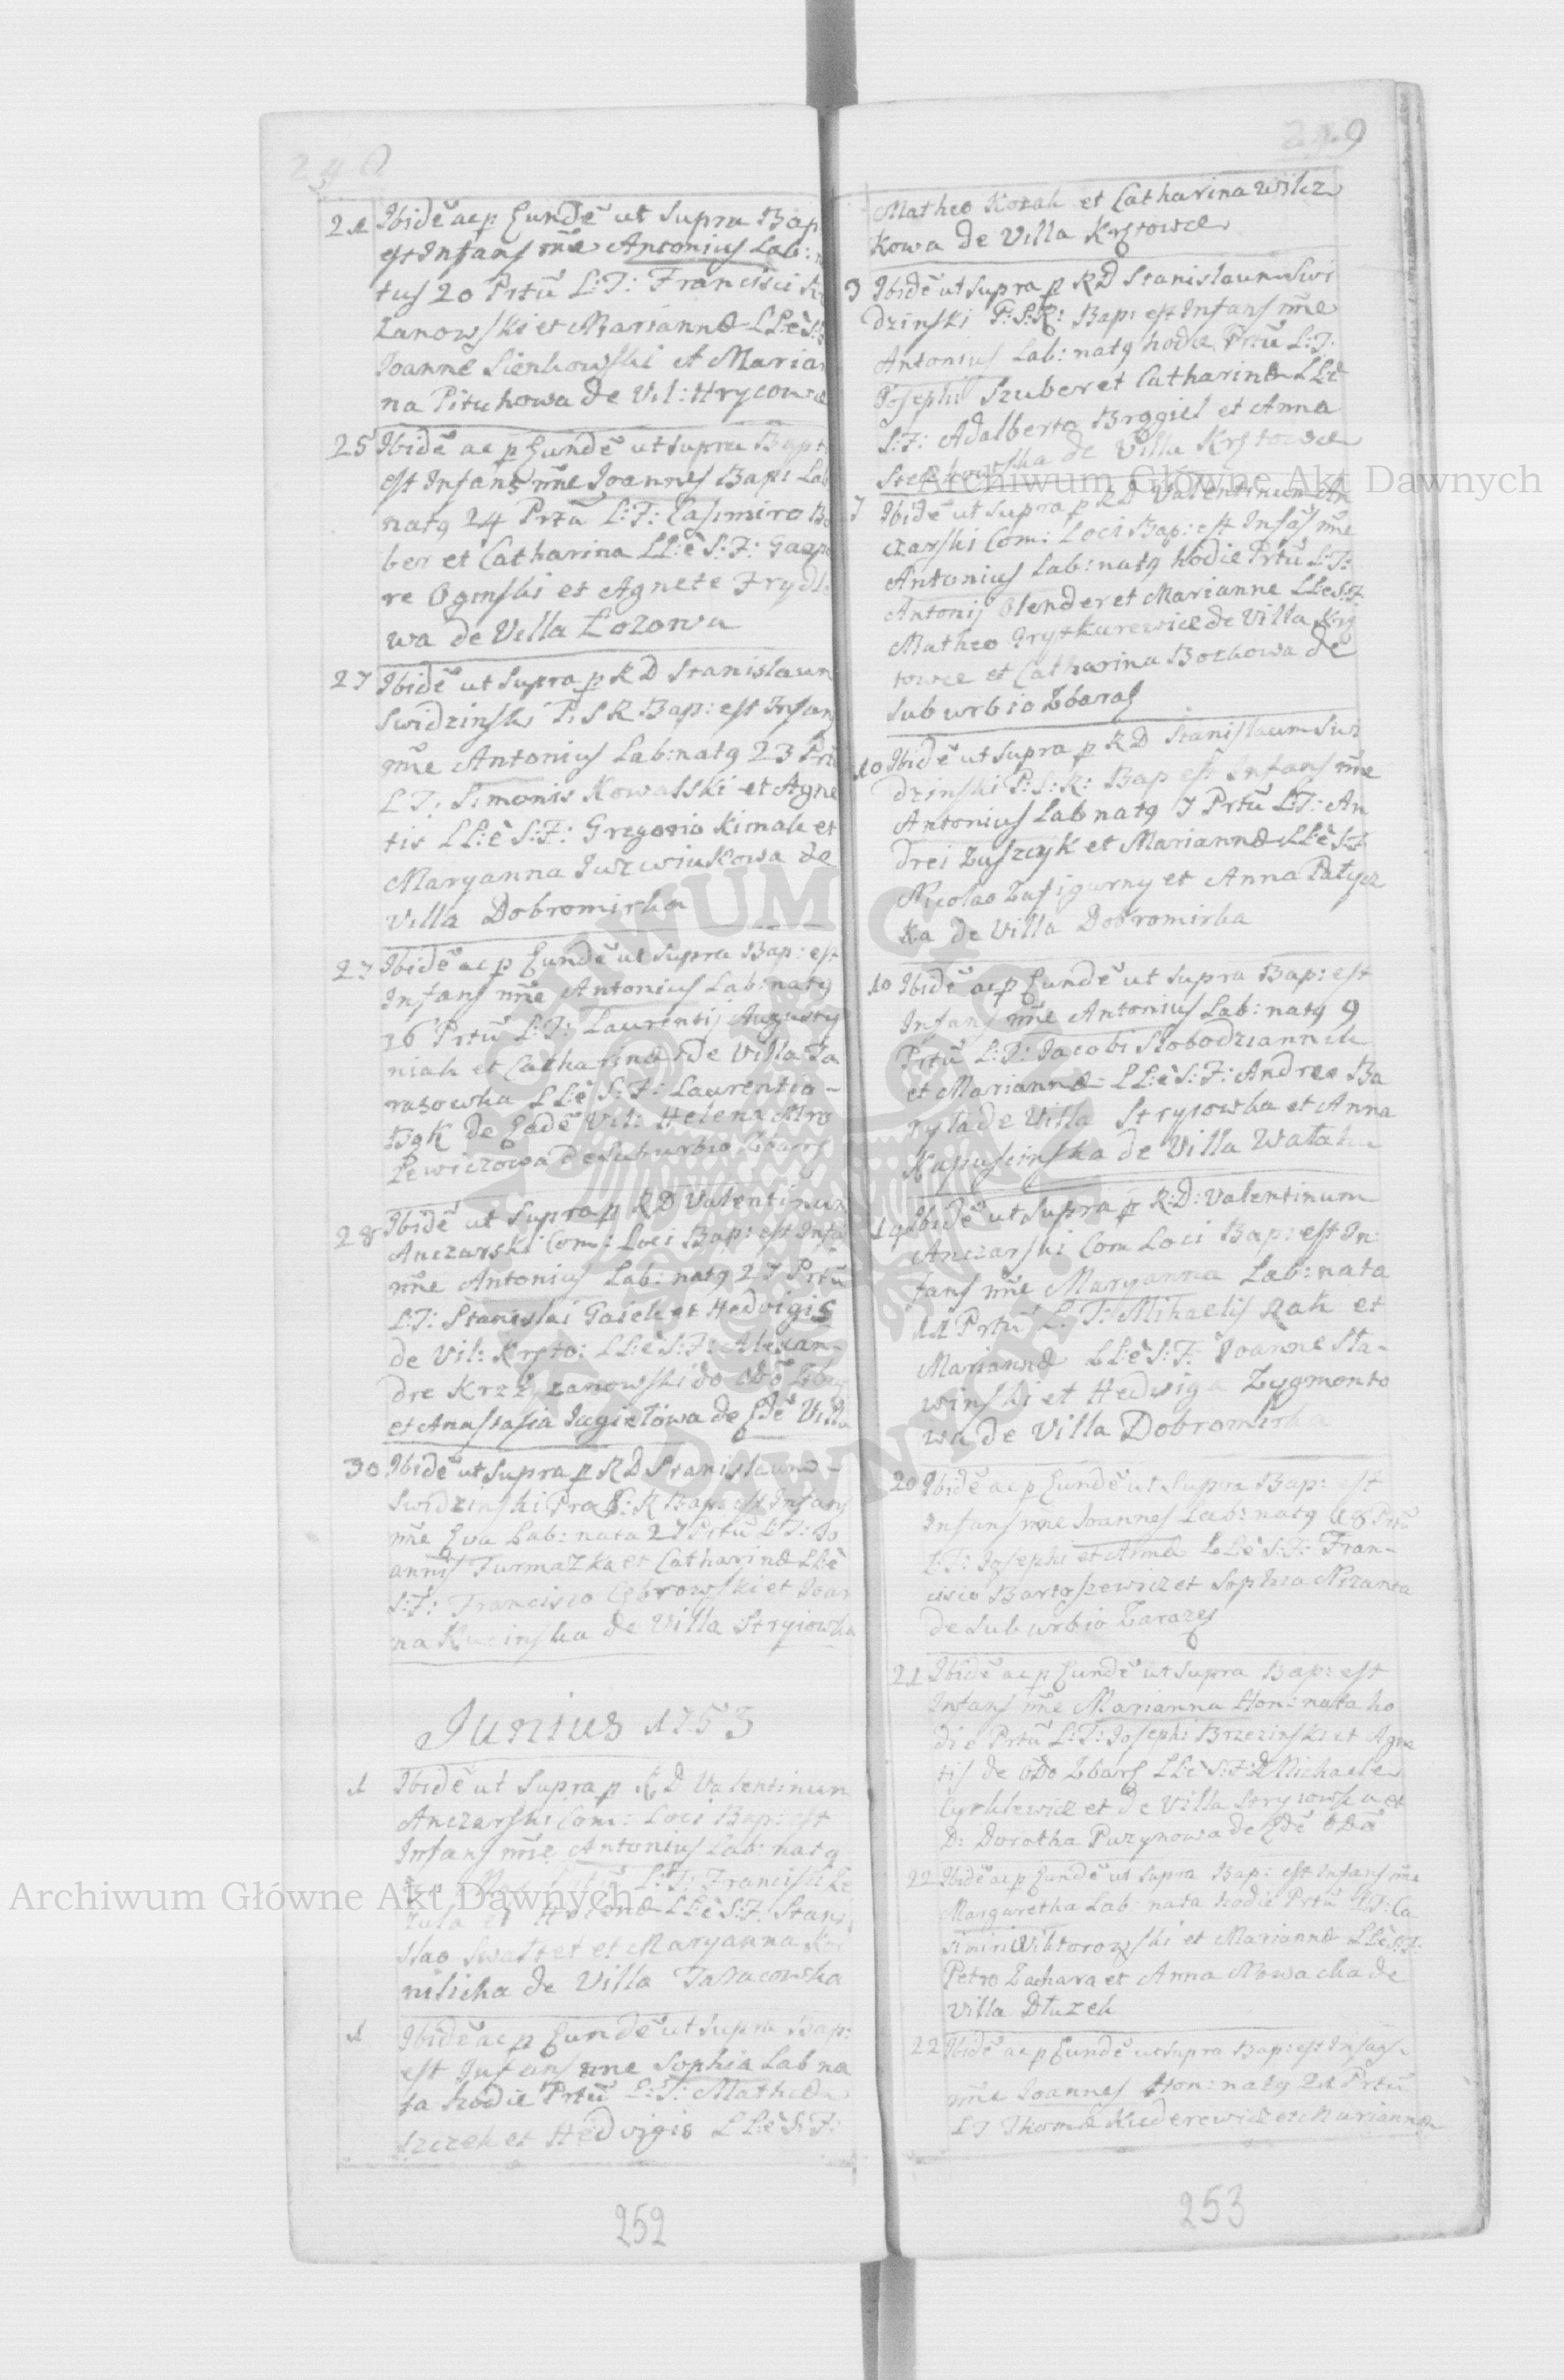 248
21 Ibidē ac p Eundē ut Supra Bap:
est Infans nñe Antonius Lab: n
tus 20 Prtū L:T: Francisci
zanowski et Mariannæ LLè S:
Joanne Sienkowski et Marian
na Pituhowa de Vil: Hrycowce
25 Ibidē ac p Eundē ut supra Bapt:
est Infans nñe Joannes Bap: Lab
natq 24 Prtū L:T: Casimiro
ber et Catharina LL:è S:F: Gasp
re Oginski et Agnete Frydl
wa de Villa Łozowa
27 Ibidē ut Supra p R D Stanislaum
Swidzinski P: S R Bap: est Infans
nñe Antonius Lab: natq 23 Prtū
L T: Simonis Kowalski et Agne
tis LL:è S:F: Gregorio Kimak et
Maryanna Juzwiukowa de
Villa Dobromirka
27 Ibidē ac p Eundē ut Supra Bap: est
Infans nñe Antonius Lab: natq
26 Prtū L:T: Laurentij Augusty
niak et Catharinæ de Villa Ta
razowka LL:è S:F: Laurentio
de Eadē Vil: Helena Mro
zewiczowa de Suburbio Zbaras
28 Ibidē ut Supra p R D Valentinum
Anczarski Com: Loci Bap: est Infa
nñe Antonius Lab: natq 27 Prtū
L:T: Stanislai Gasek et Hedvigis
de Vil: Krsto: LL:è S:F: Alexan-
dre Krzyzanowski do
et Anastasia Jagiełowa de Edē Villa
30 Ibidē ut Supra p R D Stanislaum
Swidzinski Pra S: R Bap: est Infans
nñe Eva Lab: nata 27 Prtū L:T: Jo
annis Furmazka et Catharinæ LLè
S:F: Francisco Cebrowski et Joan
na Kucinska de Villa Stryiowka
Junius 1753
1 Ibidē ut Supra p R D Valentinum
Anczarski Com: Loci Bap: est
Infans nñe Antonius Lab: natq
L:T: Francisci
et Helenæ LL:è S:F: Stani
slao et Maryanna
de Villa Tarasowka
1 Ibidē ac p Eundē ut Supra Bap:
est Infans nñe Sophia Lab na
ta hodie Prtū L:T: Mathei
szczek et Hedvigis LL:è S:F:
252
249
Matheo Kozak et Catharina Wilcz
kowa de Villa Krstowce
3 Ibidē ut Supra p R D Stanislaum Swi
dzinski P: S: R: Bap: est Infans nñe
Antonius Lab: natq hodie Prtū L:T:
Josephi Szuber et Catharinæ LLè
S:F: Adalberto Brogiel et Anna
de Villa Krstowce
7 Ibidē ut Supra p R D Valentinum An
czarski Com: Loci Bap: est Infās nñe
Antonius Lab: natq hodie Prtū L:T:
Antonij Olender et Marianne LLè S:F:
Matheo Grytkurewicz de Villa Krs
towce et Catharina Bochowa de
Suburbio Zbaras
10 Ibidē ut Supra p R D Stanislaum Swi
dzinski P: S: R: Bap est Infans nñe
Antonius Lab natq 7 Prtū L:T: An
drei Łuszczyk et Mariannæ LLè S:F:
Nicolao Zasigurny et Anna Patycz
ka de Villa Dobromirka
10 Ibidē ac p Eundē ut Supra Bap: est
Infans nñe Antonius Lab: natq 9
Prtū L:T: Jacobi Slobodziannik
et Mariannæ LL:è S:F: Andrea Ba
ryła de Villa Stryiowka et Anna
Kapuscinska de Villa Watahu
19 Ibidē ut Supra p R:D: Valentinum
Anczarski Com Loci Bap: est In
fans nñe Maryanna Lab: nata
11 Prtū L:T: Mihaelis Rak et
Mariannæ LL:è S:F: Joanne Sta-
winski et Hedwiga Zygmonto
wa de Villa Dobromirka
20 Ibidē ac p Eundē ut Supra Bap: est
Infans nñe Joannes Lab: natq 18 Prtū
L:T: Josephi et Annæ LLè S:F: Fran-
cisco Bartoszewicz et Sophia
de Suburbio
21 Ibidē ac p Eundē ut Supra Bap: est
Infans nñe Marianna Hon: nata ho
die Prtū L:T: Josephi Brzezinski et Agne
tis de Zbaras LL:è S:F: D Michaele
Cyrklewicz et de Villa Stryiowka et
D: Dorotha Puzynowa de Edē
22 Ibidē ac p Eundē ut Supra Bap: est Infans nñe
Margaretha Lab nata hodie Prtū L:T: Ca
simiri Wiktorowski et Mariannæ LLè S:F:
Petro Zachara et Anna Nowacka de
Villa Dłuzek
22 Ibidē ac p Eundē ut Supra Bap: est Infans
nñe Joannes Hon: natq 21 Prtū
L T Thomæ Kuderewicz et Mariannæ
253
Archiwum Główne Akt Dawnych
Archiwum Główne Akt Dawnych
ARCHIWUM GŁÓWNE AKT DAWNYCH